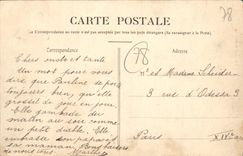 78
CARTE POSTALE
La Correspondance au recto n'est pas acceptée par tous les pays étrangers (Se renseigner à la Poste)
Correspondance
Adresse
78
Chers oncle et tante
Un mot pour vous
dire que Pauline se porte
toujours bien, qu'elle
grossit de jour en jour.
Elle gambade du
matin au soir comme un
petit diable. Elle
embrasse son papa
et sa maman. Bons baisers
de nous tous. Marthe
Mr et Madame
3 rue d'Odessa 3
Paris
XIVe